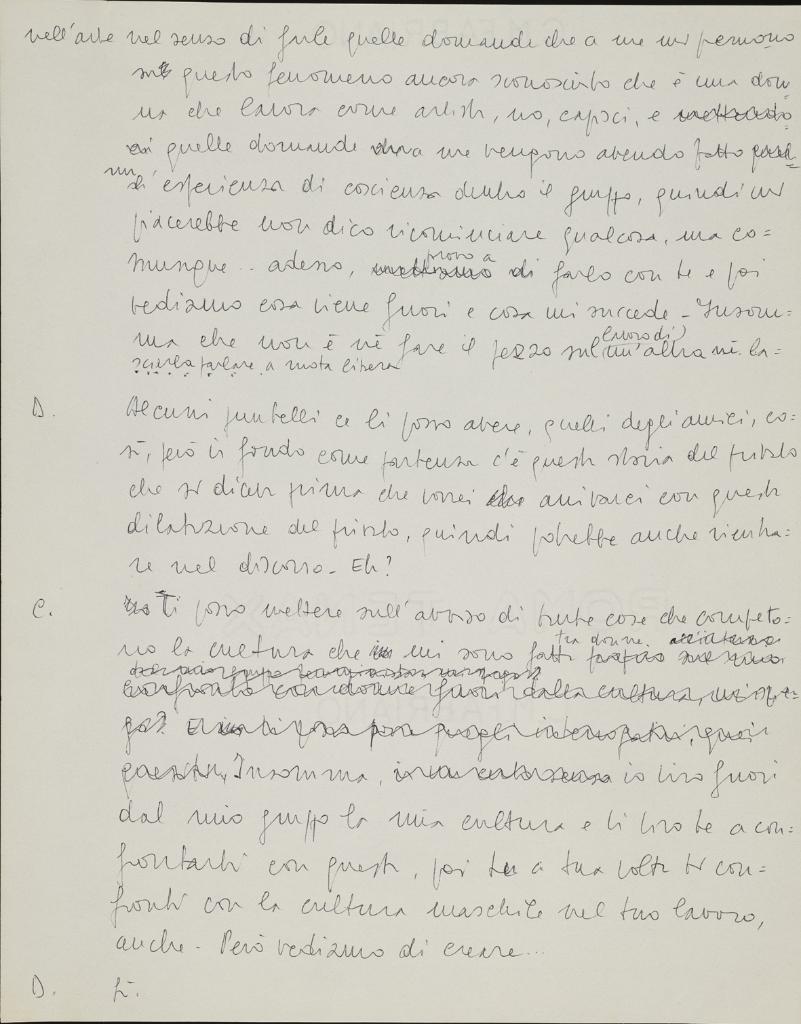 nell'arte nel senso di farle quelle domande che a me mi premono
su questo fenomeno ancora sconosciuto che è una don=
na che lavora come artista, no, capisci, e
quelle domande me vengono avendo fatto
un' esperienza di coscienza dentro il gruppo, quindi mi
piacerebbe non dico ricominciare qualcosa, ma co=
munque.. adesso, provo a di farlo con te e poi
vediamo cosa viene fuori e cosa mi succede - Insom=
ma che non è nè fare il pezzo sul (lavoro di) un'altra nè la=
sciarla parlare a ruota libera
D. Alcuni puntelli ce li posso avere, quelli degli amici, co=
sì, però in fondo come partenza c'è questa storia del
che si diceva prima che vorrei arrivarci con questa
dilatazione del, quindi potrebbe anche rientra=
re nel discorso - Eh?
C. Ti posso mettere sull'avviso di tante cose che competo=
no la cultura che mi sono fatta tra donne
confronto con donne fuori dalla cultura, mi spie=
go?
Insomma, io tiro fuori
dal mio gruppo la mia cultura e ti tiro te a con=
frontarti con questa, poi tu a tua volta ti con=
fronti con la cultura maschile nel tuo lavoro,
anche - Però vediamo di creare...
D. Sì.